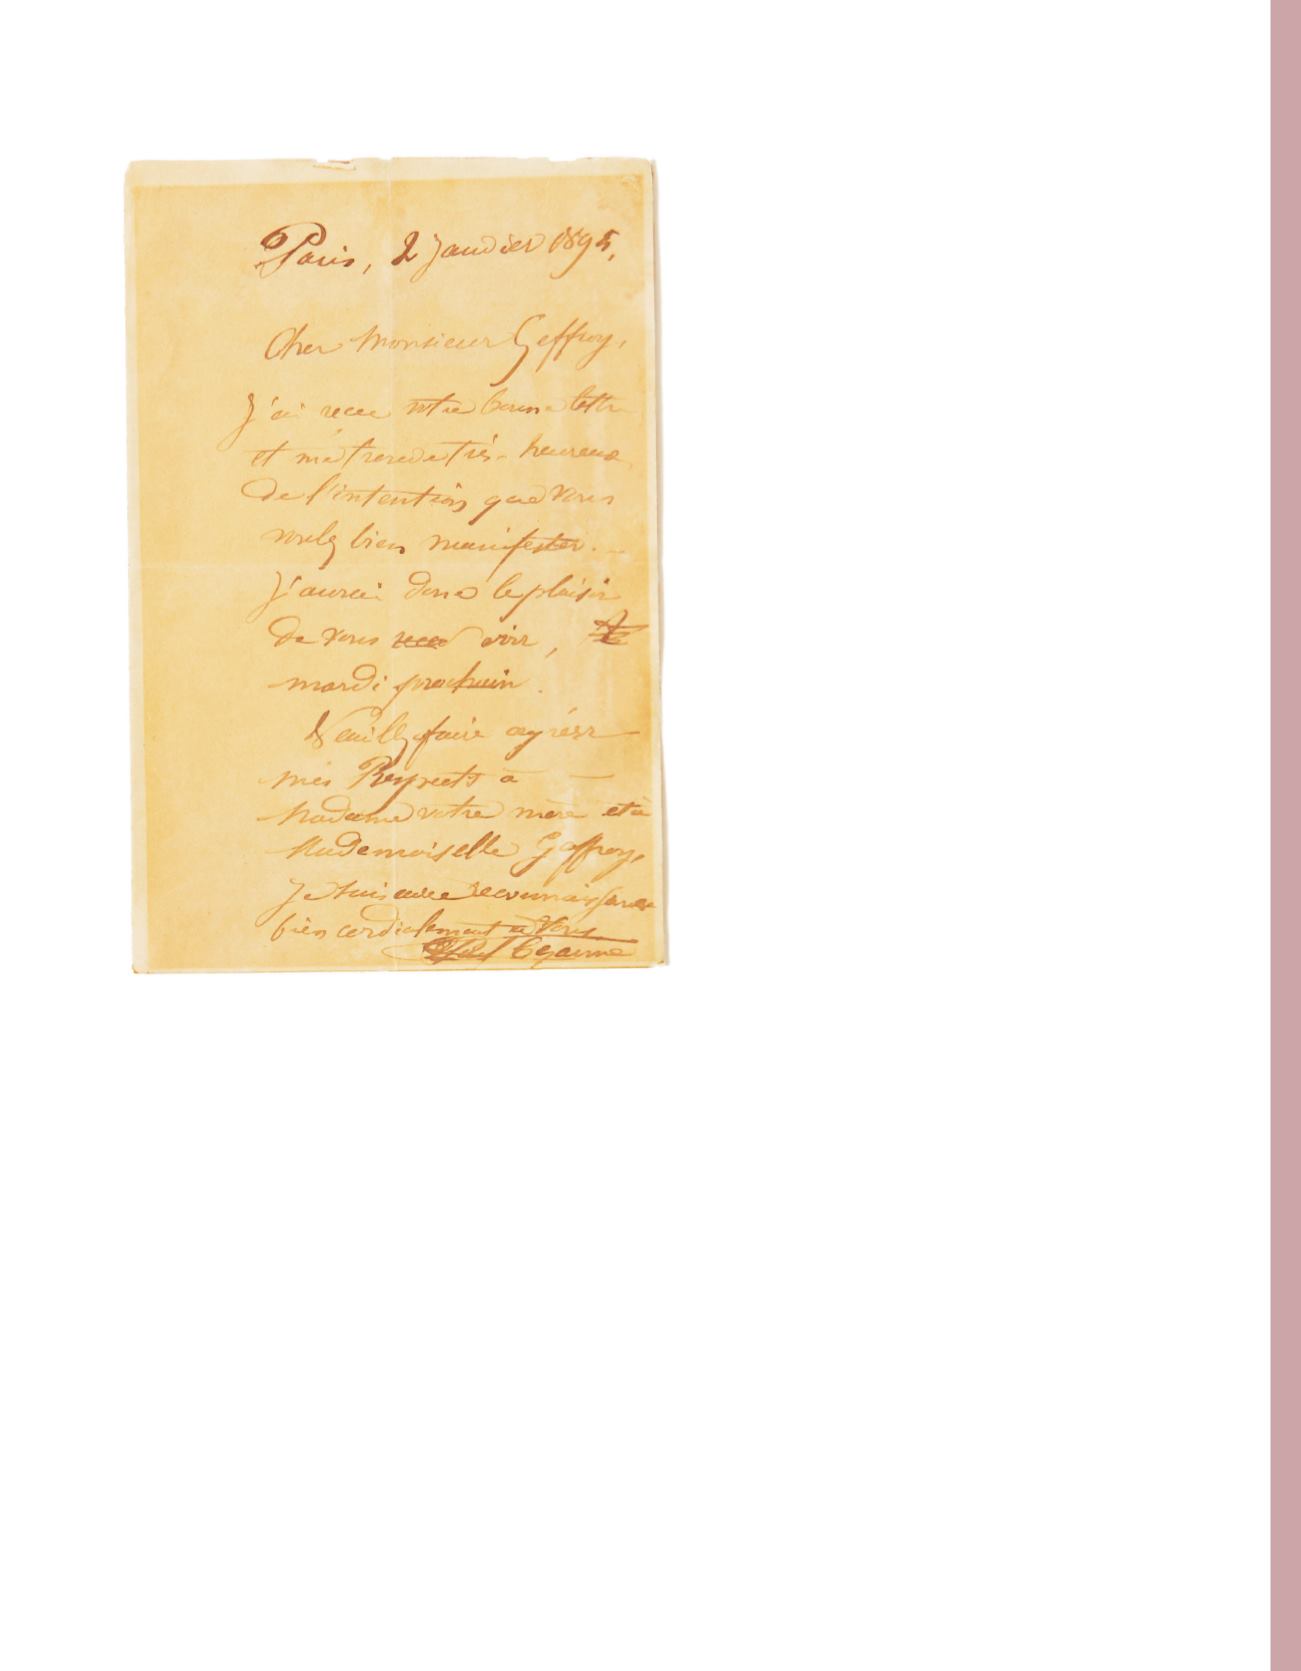 Paris, 2 Janvier 1895,
Cher Monsieur Geffroy,
J'ai reçu votre bonne lettre
et me trouve très heureux
de l'intention que vous
voulez bien manifester. —
J'aurai donc le plaisir
de vous voir,
mardi prochain.
Veuillez faire agréer
mes Respects à —
Madame votre mère et à
Mademoiselle Geffroy,
Je suis avec reconnaissance
bien cordialement à vous
Paul Cezanne